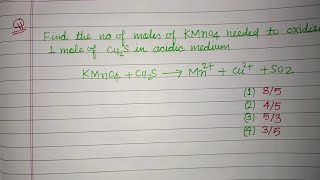 Q
Find the no of moles of KMnO4 needed to oxidise
1 mole of Cu2S in acidic medium
KMnO4 + Cu2S → Mn2+ + Cu2+ + SO2
(1) 8/5
(2) 4/5
(3) 5/3
(4) 3/5